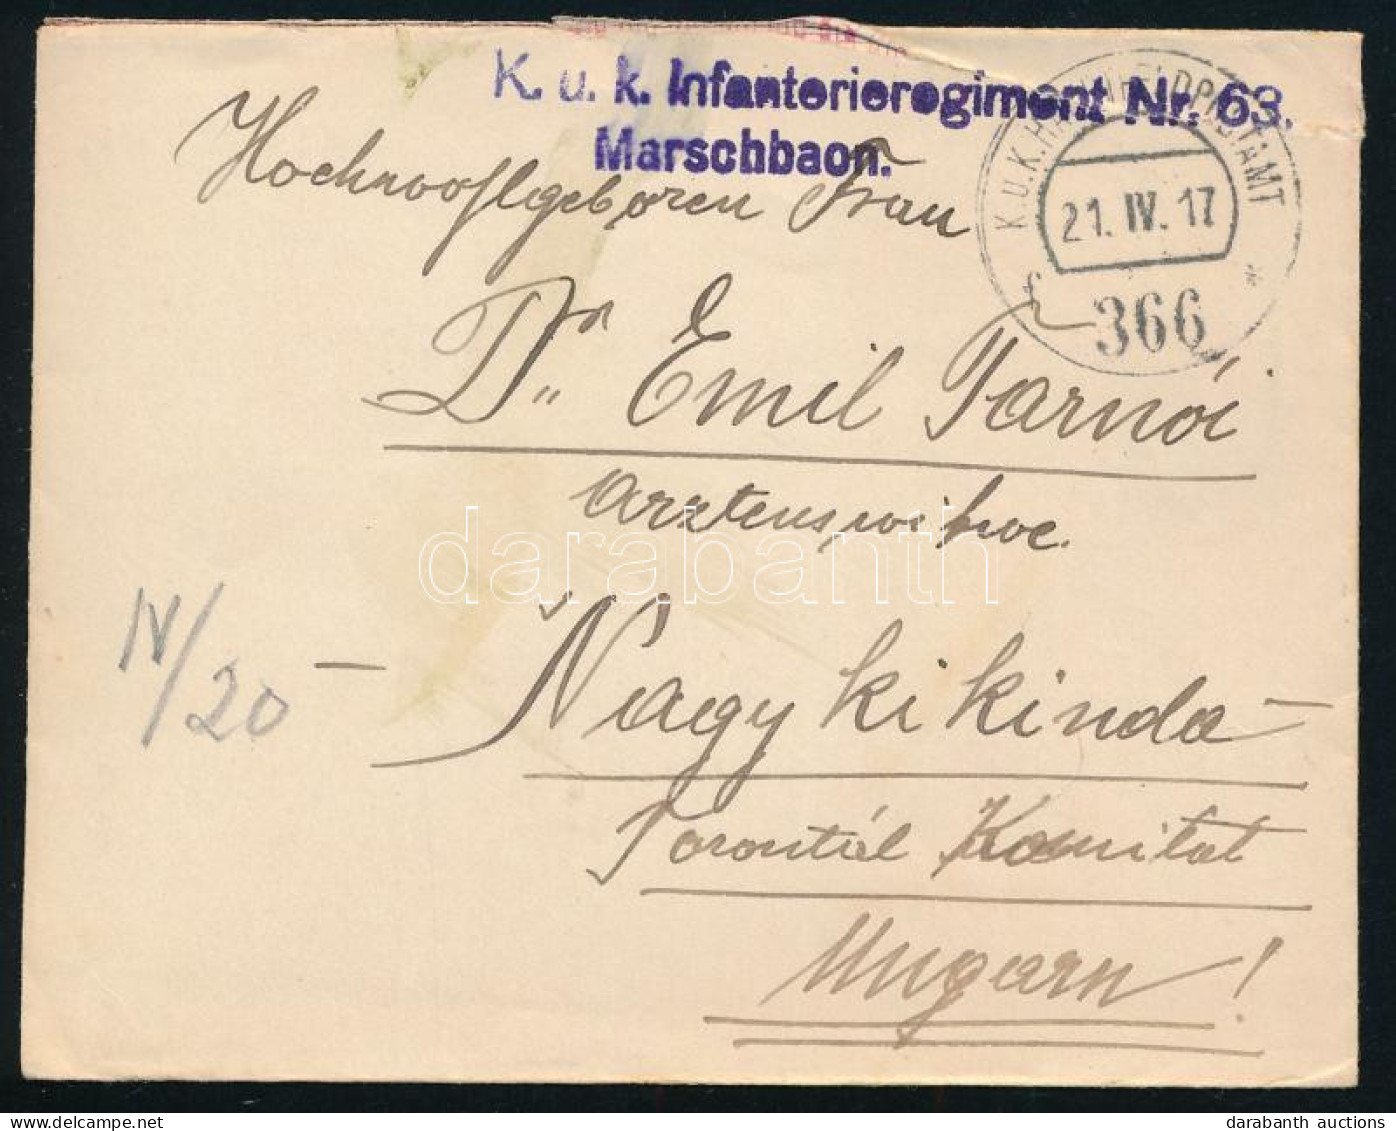 K. u. k. Infanterieregiment Nr. 63.
Marschbaon.
K. u. K. HAUPTFELDPOSTAMT
21. IV. 17
366
Hochwohlgeboren Frau
Dr. Emil Tarnói
Arztenswitwe.
IV/20
— Nagykikinda —
Torontál Komitat
Ungarn!
darabanth
darabanth auctions